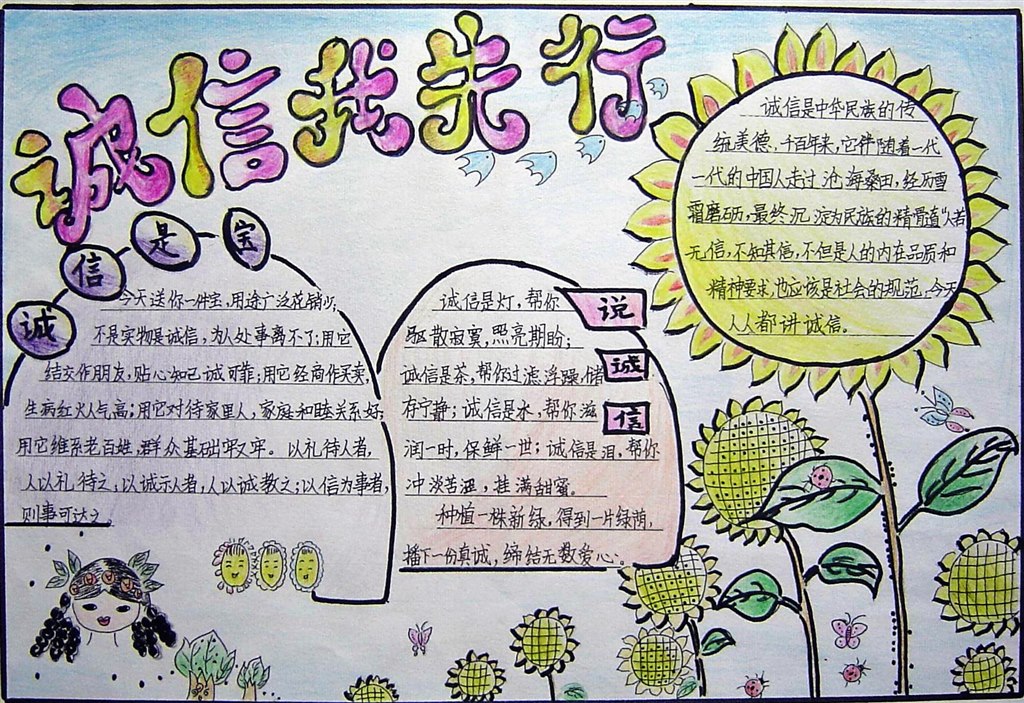 诚信我先行
诚信是宝
今天送你一件宝,用途广泛花销少,
不是实物是诚信,为人处事离不了;用它
结交作朋友,贴心知己诚可靠;用它经商作买卖,
生病红火人气高;用它对待家里人,家庭和睦关系好;
用它维系老百姓,群众基础牢又牢。以礼待人者,
人以礼待之,以诚示人者,人以诚教之;以信为事者,
则事可达之。
说诚信
诚信是灯,帮你
驱散寂寞,照亮期盼;
诚信是茶,帮你过滤浮躁,储
存宁静;诚信是水,帮你滋
润一时,保鲜一世;诚信是泪,帮你
冲淡苦涩,挂满甜蜜。
种植一株新绿,得到一片绿荫,
播下一份真诚,缔结无数爱心。
诚信是中华民族的传
统美德,千百年来,它伴随着一代
一代的中国人走过沧海桑田,经历雪
霜磨砺,最终沉淀为民族的精骨道“人若
无信,不知其信,不但是人的内在品质和
精神要求,也应该是社会的规范,今天
人人都讲诚信。